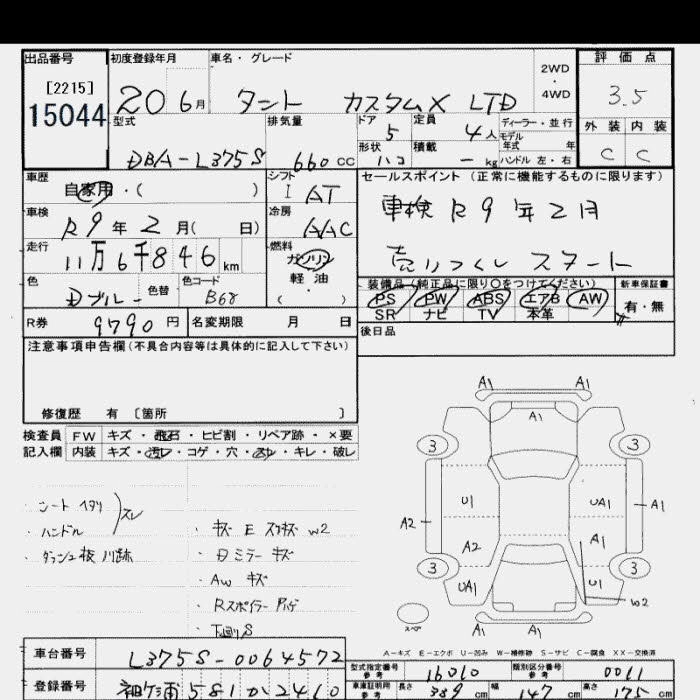 出品番号
[2215]
15044
初度登録年月
20 6月
車名・グレード
タント カスタムX LTD
2WD
・
4WD
評価点
3.5
外装 内装
C C
型式
DBA-L375S
排気量
660cc
ドア
5
定員
4人
形状
ハコ
積載
- kg
ディーラー・並行
モデル
年式 年
ハンドル 左・右
車歴
自家用・( )
車検
R9年2月( 日)
走行
11万6千846km
色
Dブルー
色替
色コード
B68
シフト
I AT
冷房
AAC
燃料
ガソリン
軽・油
( )
セールスポイント (正常に機能するものに限ります)
車検 R9年2月
売りつくし スタート
装備品(純正品に限り○をつけてください)
PS PW ABS エアB AW
SR ナビ TV 本革
新車保証書
有・無
R券
9790円
名変期限 月 日
後日品
注意事項申告欄(不具合内容等は具体的に記入して下さい)
修復歴 有 [箇所 ]
検査員 FW キズ・飛石・ヒビ割・リペア跡・×要
記入欄 内装 キズ・汚レ・コゲ・穴・スレ・キレ・破レ
・シート ヘタリ
・ハンドル
スレ
・ダッシュ板 爪跡
・キズ E スリキズ W2
・Dミラー キズ
・AW キズ
・Rスポイラー ハゲ
・下廻りS
A1 A1
A1
3 3
U1 UA1 A1
A2 A2 A1
3 3
UA1 U1
W2
スペア
A1 A1
A-キズ E-エクボ U-凹み W-補修跡 S-サビ C-腐食 XX-交換済
車台番号
L375S-0064572
登録番号
袖ケ浦 581 か 2410
型式指定番号
参考
16010
類別区分番号
参考
0061
車庫証明用
参考
長さ
339cm
幅
147cm
高さ
175cm